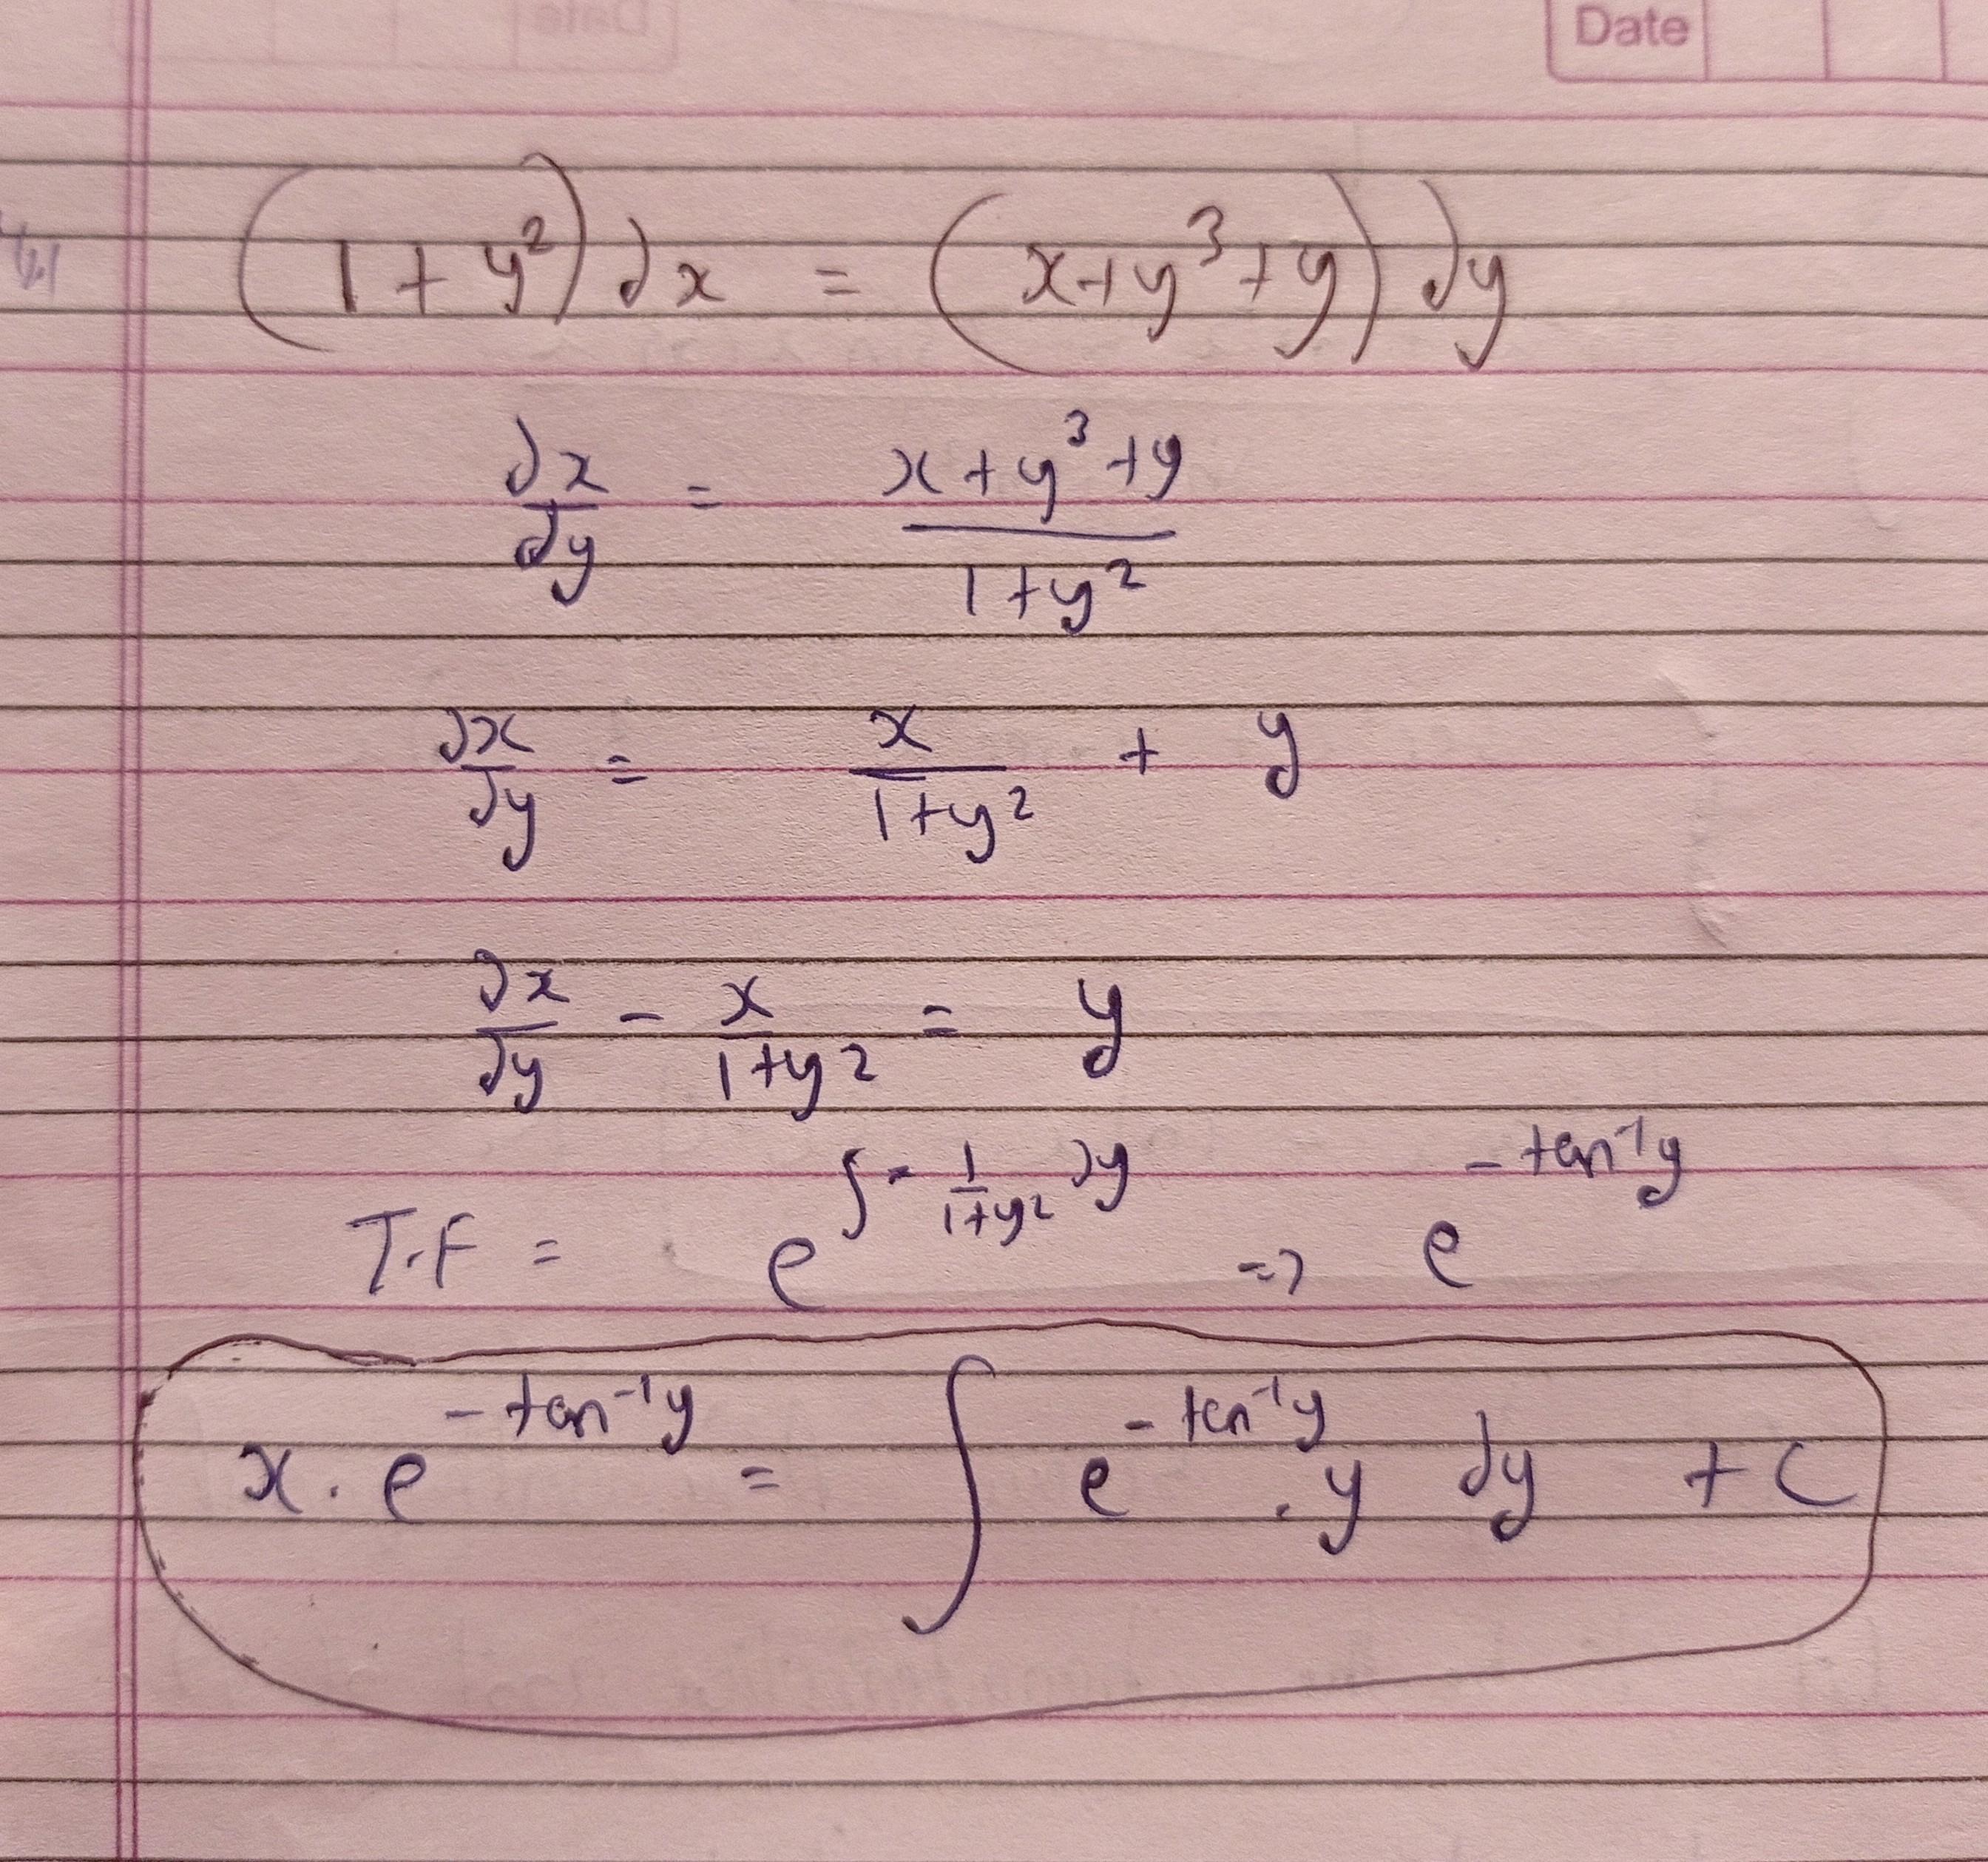 Date
(1 + y²) dx = (x + y³ + y) dy
dx/dy = (x + y³ + y)/(1 + y²)
dx/dy = x/(1 + y²) + y
dx/dy - x/(1 + y²) = y
I.F = e^(∫ - 1/(1 + y²) dy) => e^(- tan⁻¹y)
x . e^(- tan⁻¹y) = ∫ e^(- tan⁻¹y) . y dy + C